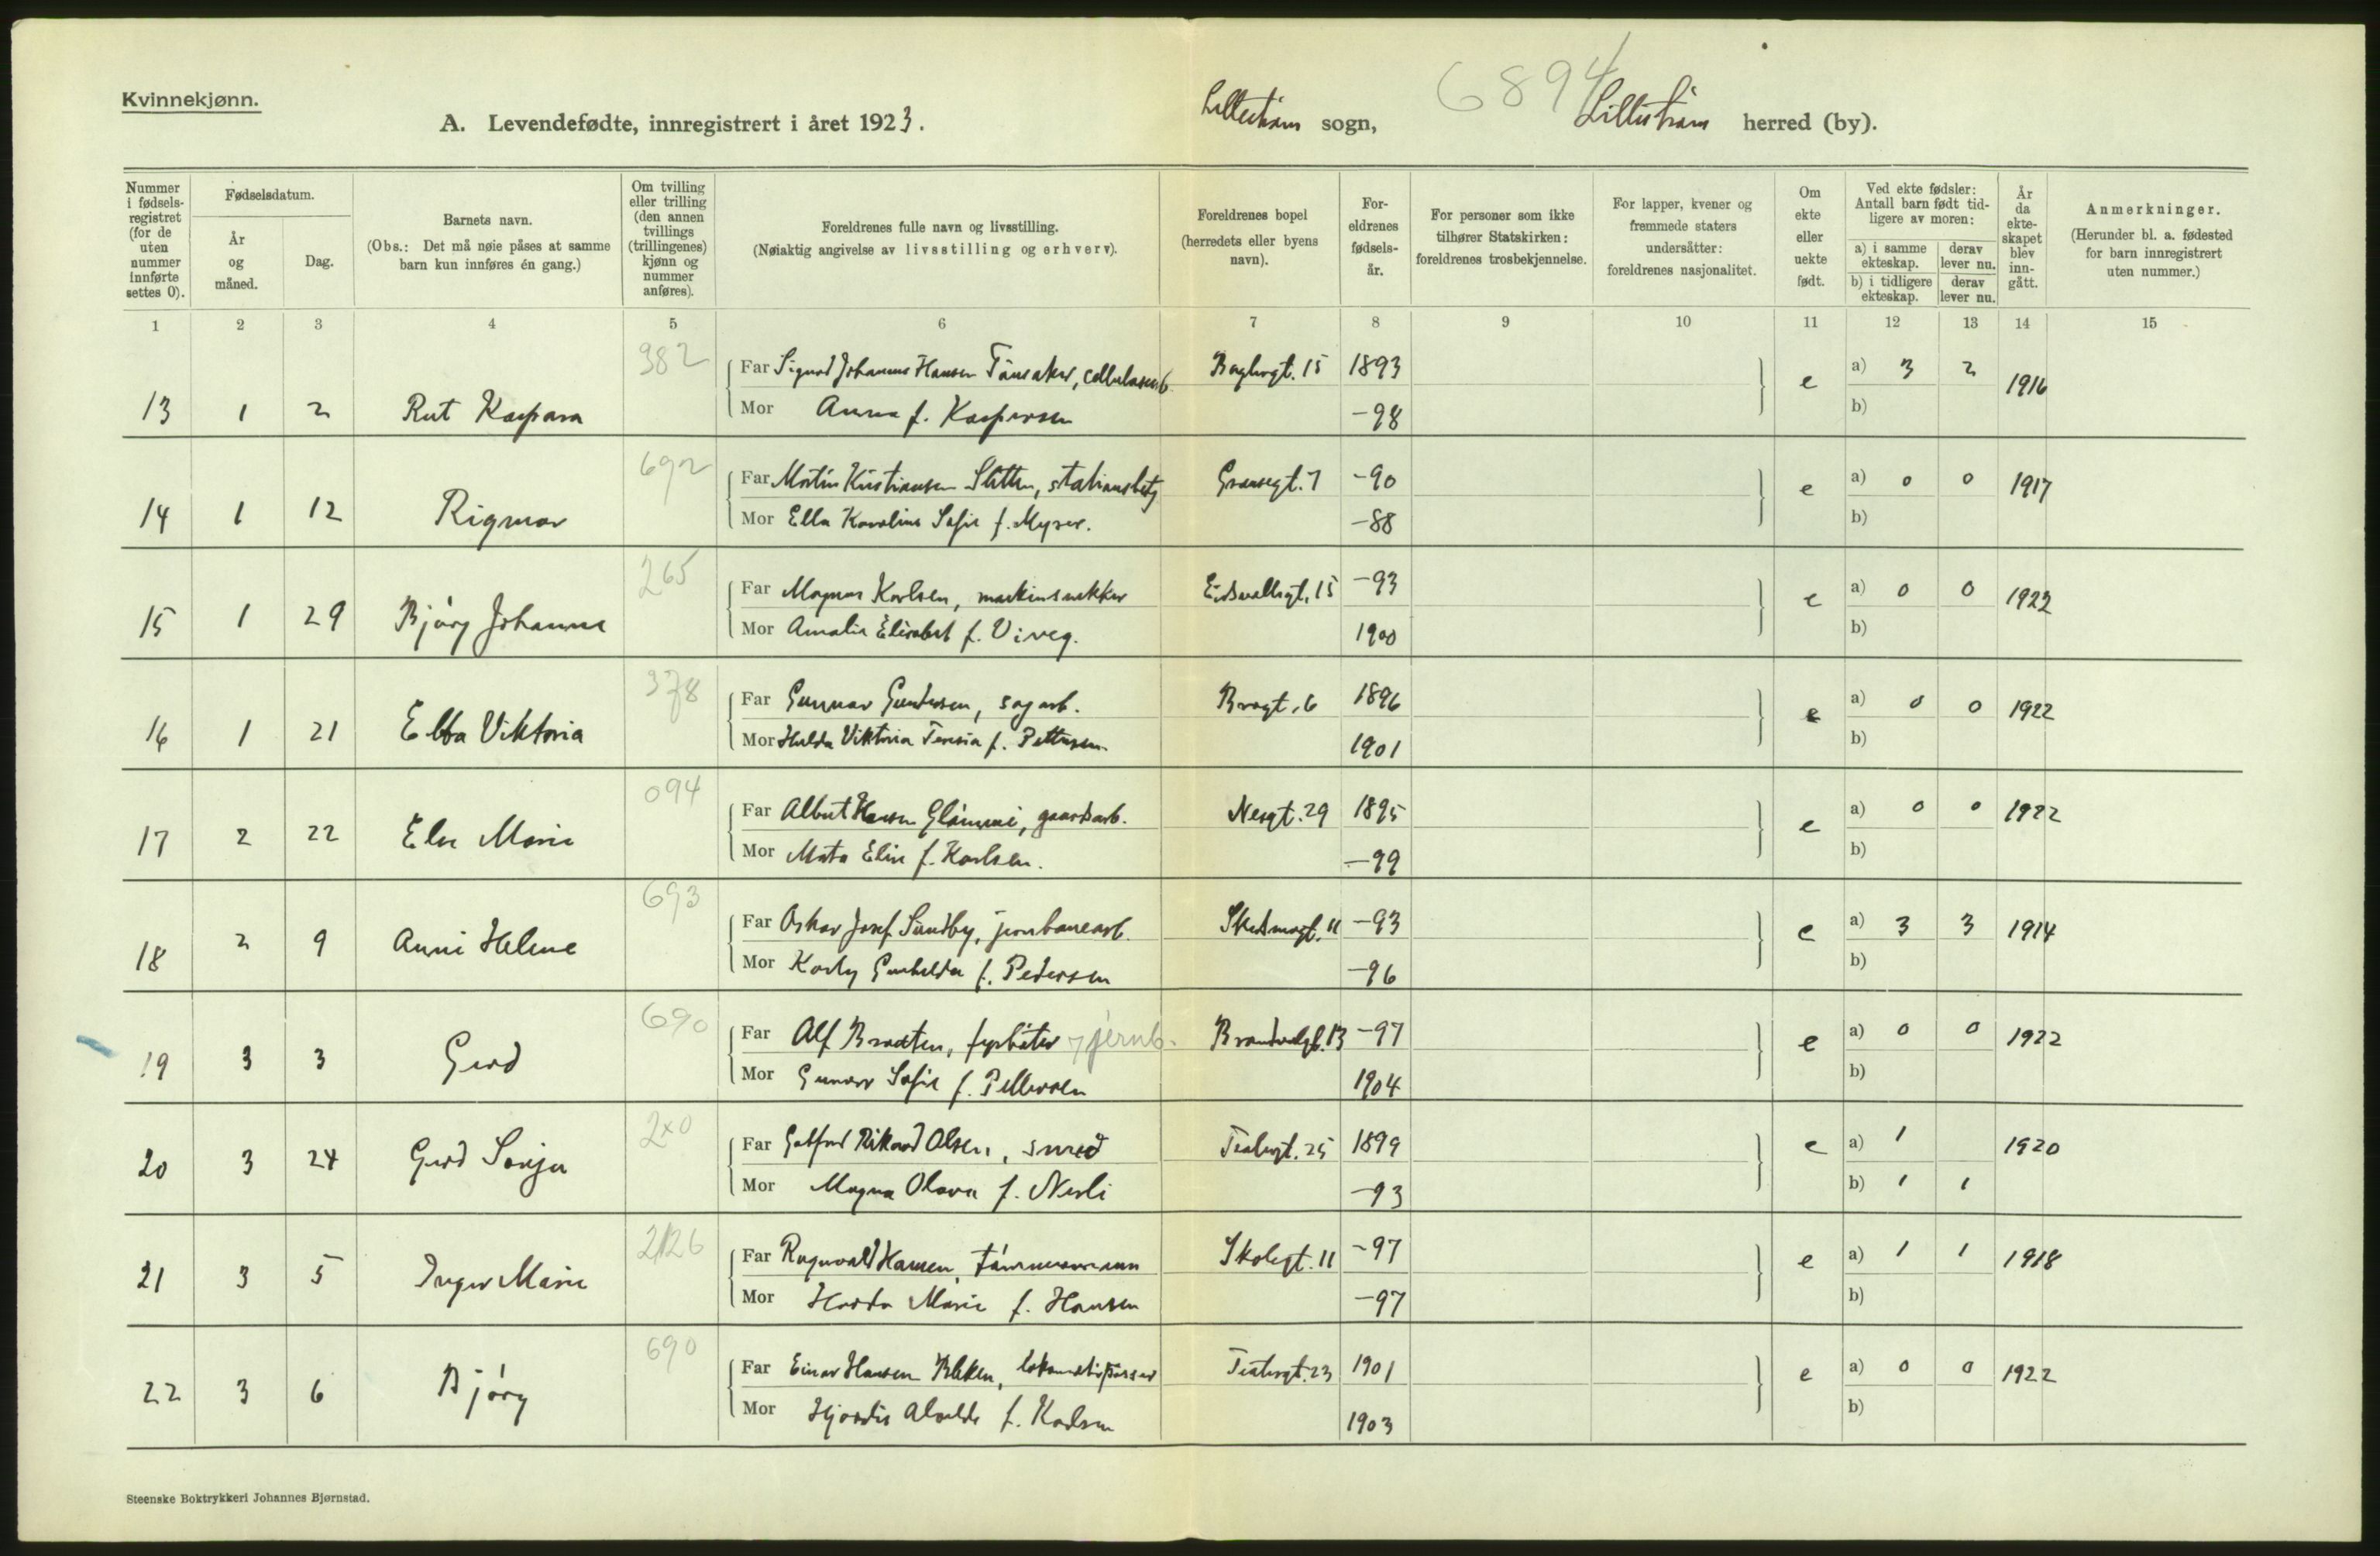 Kvinnekjønn.
6894
A. Levendefødte, innregistrert i året 1923. Lillestrøm sogn, Lillestrøm herred (by).
Nummer i fødselsregistret (for de uten nummer innførte settes 0).
Fødselsdatum.
År og måned.
Dag.
Barnets navn.
(Obs.: Det må nøie påses at samme barn kun innføres én gang.)
Om tvilling eller trilling (den annen tvillings (trillingenes) kjønn og nummer anføres).
Foreldrenes fulle navn og livsstilling.
(Nøiaktig angivelse av livsstilling og erhverv).
Foreldrenes bopel (herredets eller byens navn).
Foreldrenes fødselsår.
For personer som ikke tilhører Statskirken: foreldrenes trosbekjennelse.
For lapper, kvener og fremmede staters undersåtter: foreldrenes nasjonalitet.
Om ekte eller uekte født.
Ved ekte fødsler: Antall barn født tidligere av moren:
a) i samme ekteskap. derav lever nu.
b) i tidligere ekteskap. derav lever nu.
År da ekteskapet blev inngått.
Anmerkninger.
(Herunder bl. a. fødested for barn innregistrert uten nummer.)
1 2 3 4 5 6 7 8 9 10 11 12 13 14 15
382
Far Sigurd Johannes Hansen 1893 a) 3 2
13 1 2 Rut Kaspara e 1916
Mor Anna f. Kaspersen -98 b)
692
Far Martin Kristiansen Sletten, stationsbetj -90 a) 0 0
14 1 12 Rigmor e 1917
Mor Ella Karoline Sofie f. Myrer. -88 b)
265
Far Magnus Karlsen, maskinsnekker Eidsvollsgt. 15 -93 a) 0 0
15 1 29 Bjørg Johanne e 1922
Mor Amalie Elisabet f. Viveg. 1900 b)
378
Far Gunnar Gundersen, sagarb. Brogt. 6 1896 a) 0 0
16 1 21 Ebba Viktoria e 1922
Mor Hulda Viktoria Teresia f. Pettersen 1901 b)
094
Far Albert Hansen gaardsarb. Nesgt. 29 1895 a) 0 0
17 2 22 Else Marie e 1922
Mor Elise f. Karlsen. -99 b)
693
Far Oskar Josef Sundby, jernbanearb. Skedsmogt. 11 -93 a) 3 3
18 2 9 Anni Helene e 1914
Mor Gunhilda f. Pedersen -96 b)
690
Far Alf Braaten, fyrbøter jernb. Brandvalgt. 13 -97 a) 0 0
19 3 3 Gerd e 1922
Mor Gunvor Sofie f. Pettersen 1904 b)
2x0
Far Gotfred Rikard Olsen, smed Teatergt. 25 1899 a) 1
20 3 24 Gerd Sonja e 1920
Mor Magna Olava f. Nesli -93 b) 1 1
2126
Far Ragnvald Hansen, tømmermann Skolegt. 11 -97 a) 1 1
21 3 5 Inger Marie e 1918
Mor Marie f. Hansen -97 b)
690
Far Einar Hansen Bleken, lokomotivpusser Teatergt. 23 1901 a) 0 0
22 3 6 Bjørg e 1922
Mor Hjørdis Alvilde f. Karlsen 1903 b)
Steenske Boktrykkeri Johannes Bjørnstad.